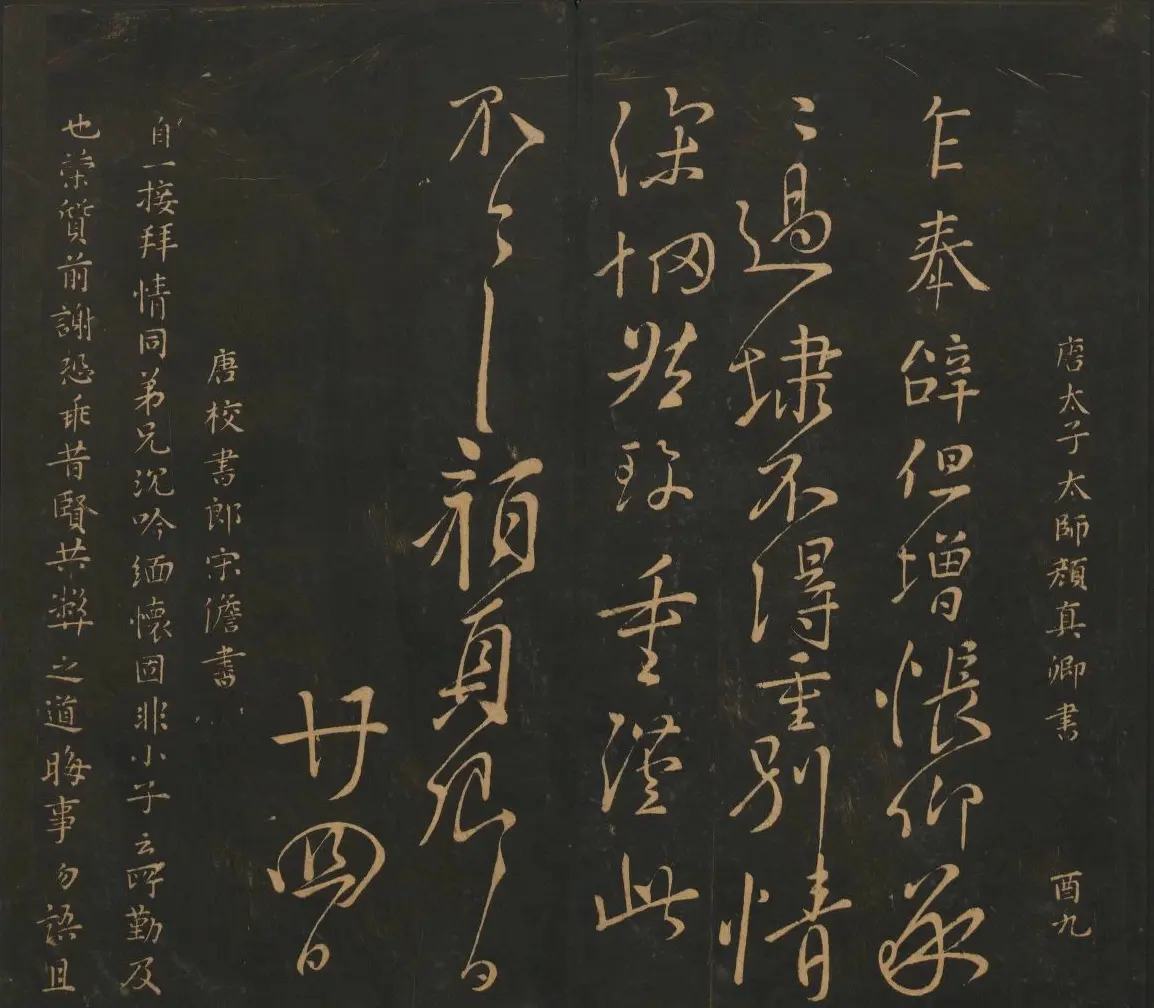 唐太子太師顏真卿書 酉九
乍奉辭但增悵仰承
已過埭不得重別情
深惘然珍重謹此
不顏真卿白
廿四日
唐校書郎宋儋書
自一接拜情同弟兄沉吟緬懷固非小子云所勤及
也榮質前謝恐乖昔賢共弊之道晦事勿語且